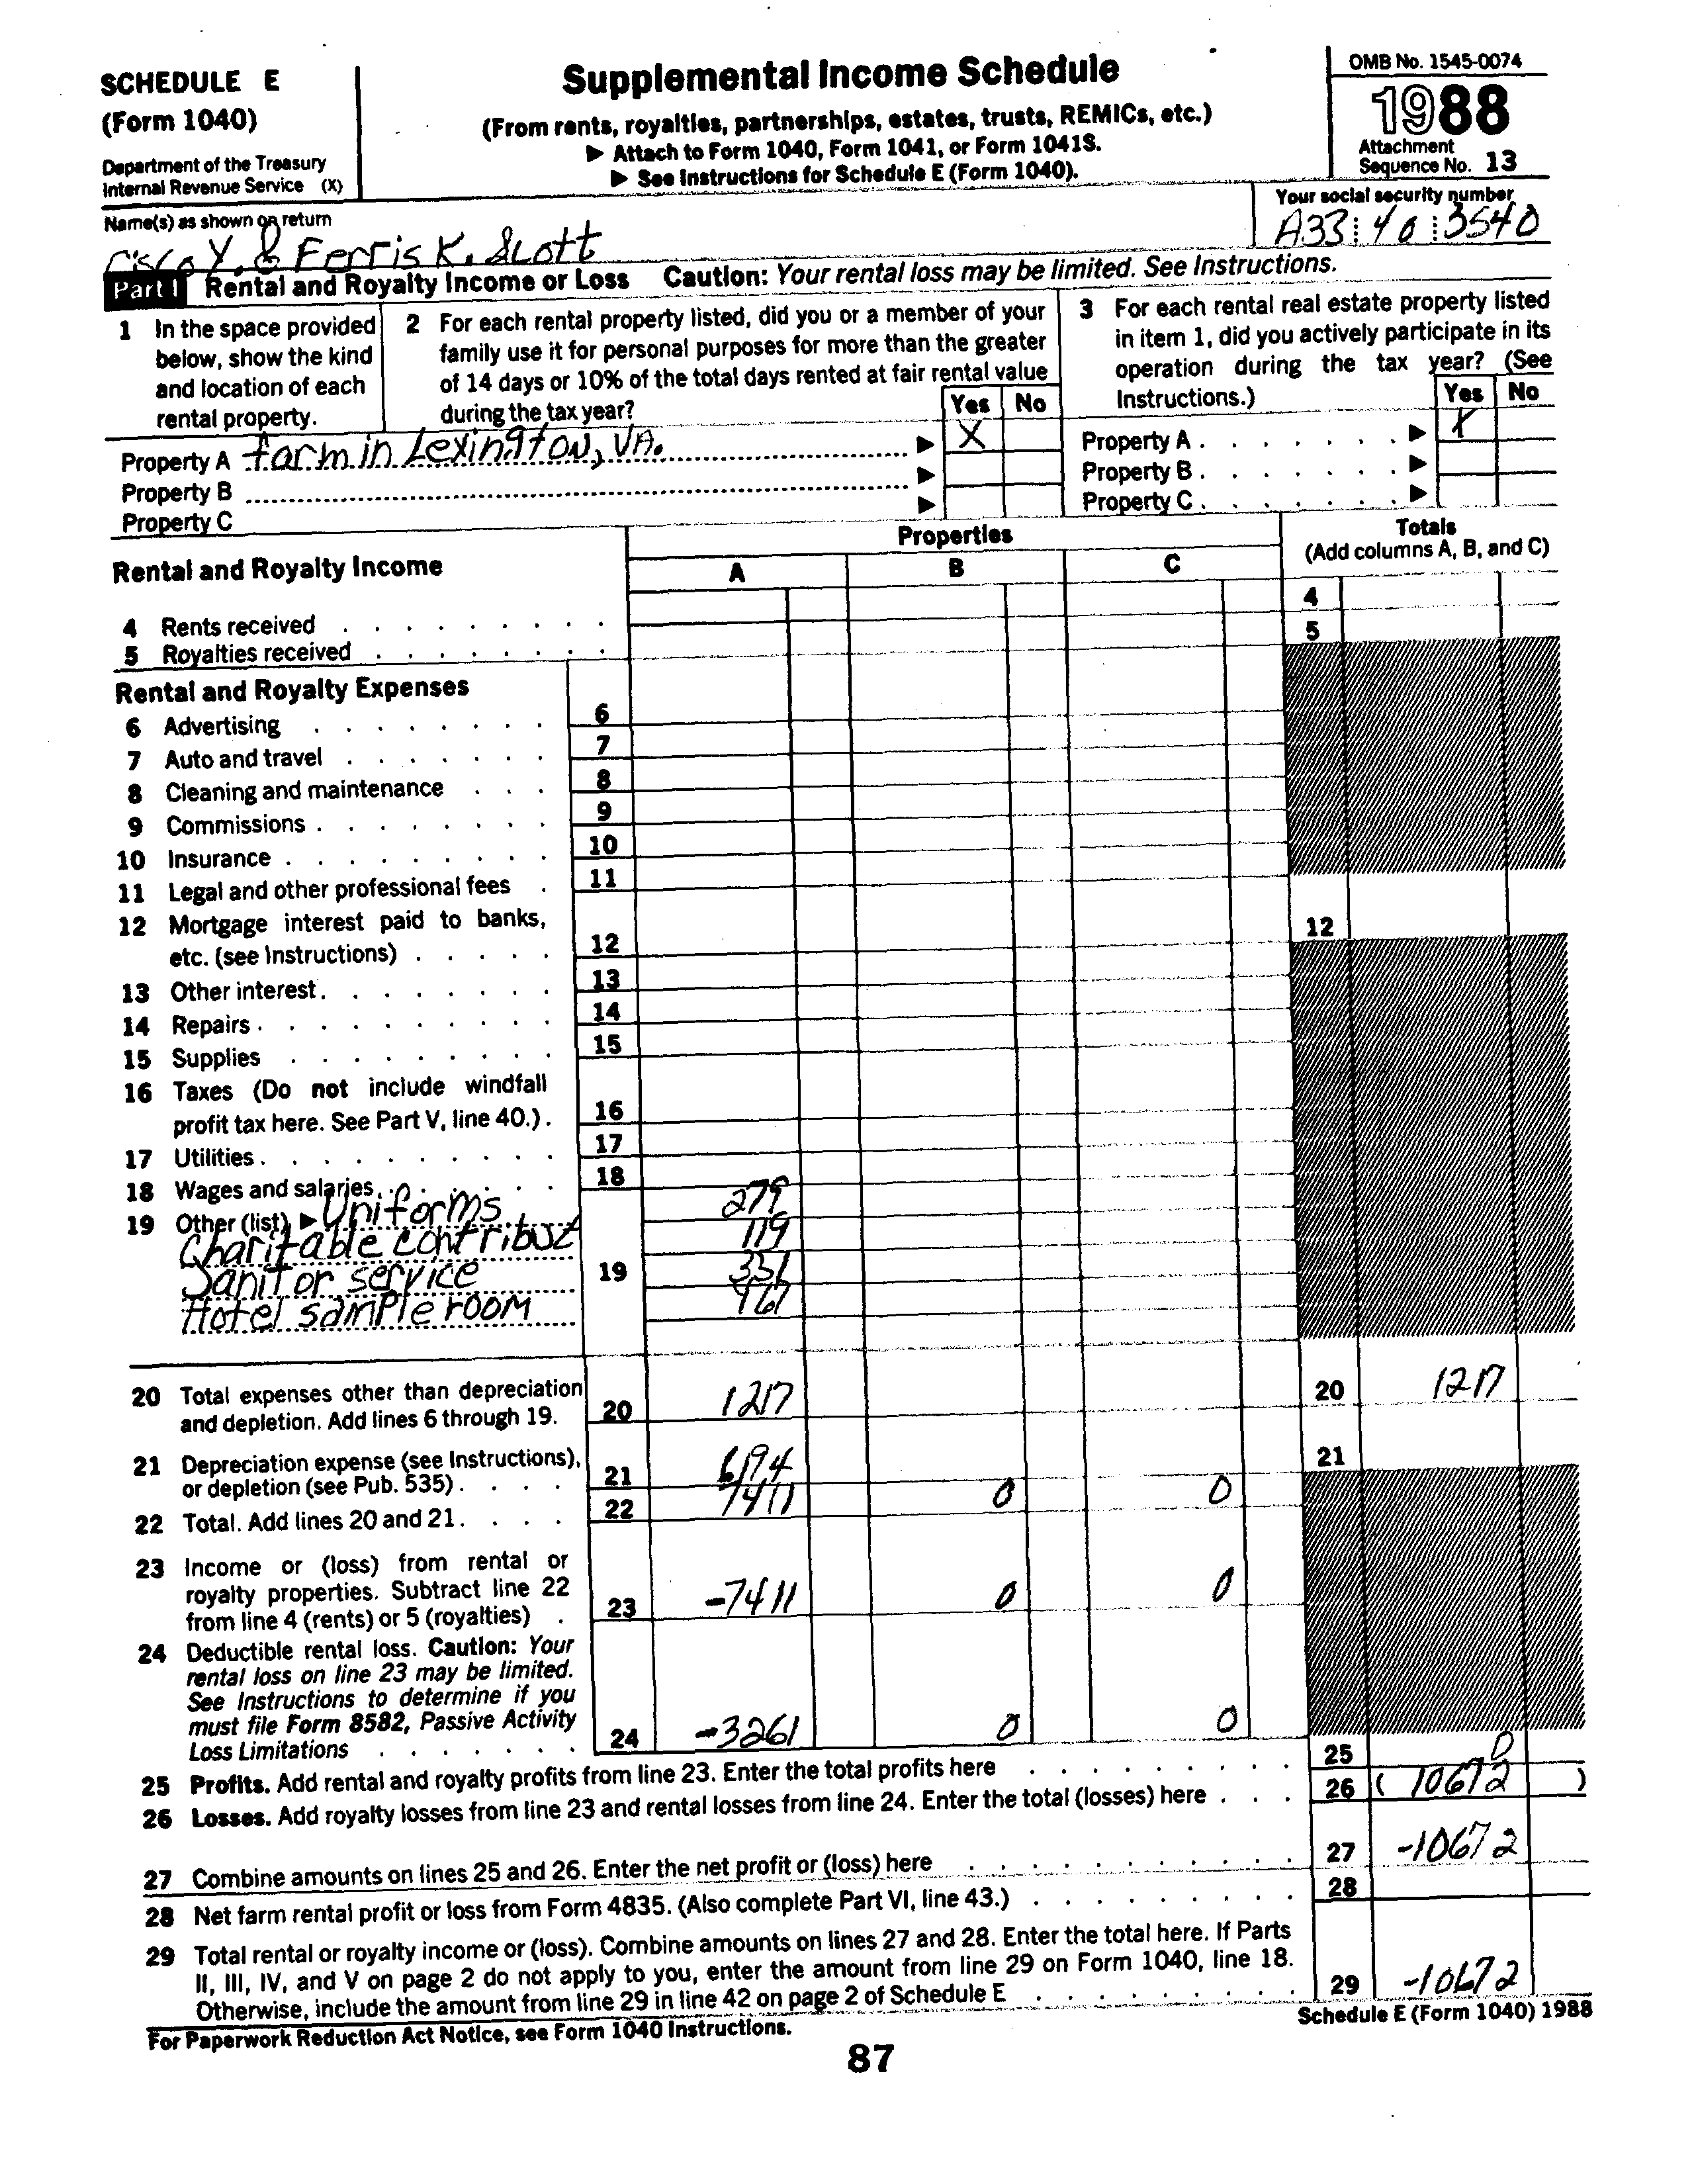 SCHEDULE E
(Form 1040)
Department of the Treasury
Internal Revenue Service (X)
Supplemental Income Schedule
(From rents, royalties, partnerships, estates, trusts, REMICs, etc.)
▶ Attach to Form 1040, Form 1041, or Form 1041S.
▶ See Instructions for Schedule E (Form 1040).
OMB No. 1545-0074
1988
Attachment
Sequence No. 13
Name(s) as shown on return
Y. & Ferris K. Scott
Your social security number
A33 40 3540
Part I Rental and Royalty Income or Loss Caution: Your rental loss may be limited. See Instructions.
1 In the space provided
below, show the kind
and location of each
rental property.
2 For each rental property listed, did you or a member of your
family use it for personal purposes for more than the greater
of 14 days or 10% of the total days rented at fair rental value
during the tax year?
Yes No
3 For each rental real estate property listed
in item 1, did you actively participate in its
operation during the tax year? (See
Instructions.)
Yes No
Property A farm in Lexington, VA. ▶ X
Property B ▶
Property C ▶
Property A ▶ X
Property B ▶
Property C ▶
Rental and Royalty Income
Properties
A B C
Totals
(Add columns A, B, and C)
4 Rents received 4
5 Royalties received 5
Rental and Royalty Expenses
6 Advertising 6
7 Auto and travel 7
8 Cleaning and maintenance 8
9 Commissions 9
10 Insurance 10
11 Legal and other professional fees 11
12 Mortgage interest paid to banks,
etc. (see Instructions) 12 12
13 Other interest 13
14 Repairs 14
15 Supplies 15
16 Taxes (Do not include windfall
profit tax here. See Part V, line 40.) 16
17 Utilities 17
18 Wages and salaries 18
19 Other (list) ▶ Uniforms 279
Charitable contribut 119
Janitor service 19 351
Hotel sample room 467
20 Total expenses other than depreciation
and depletion. Add lines 6 through 19. 20 1217 20 1217
21 Depreciation expense (see Instructions),
or depletion (see Pub. 535) 21 6194 21
22 Total. Add lines 20 and 21 22 7411 0 0
23 Income or (loss) from rental or
royalty properties. Subtract line 22
from line 4 (rents) or 5 (royalties) 23 -7411 0 0
24 Deductible rental loss. Caution: Your
rental loss on line 23 may be limited.
See Instructions to determine if you
must file Form 8582, Passive Activity
Loss Limitations 24 -3261 0 0
25 Profits. Add rental and royalty profits from line 23. Enter the total profits here 25 0
26 Losses. Add royalty losses from line 23 and rental losses from line 24. Enter the total (losses) here 26 ( 10672 )
27 Combine amounts on lines 25 and 26. Enter the net profit or (loss) here 27 -10672
28 Net farm rental profit or loss from Form 4835. (Also complete Part VI, line 43.) 28
29 Total rental or royalty income or (loss). Combine amounts on lines 27 and 28. Enter the total here. If Parts
II, III, IV, and V on page 2 do not apply to you, enter the amount from line 29 on Form 1040, line 18.
Otherwise, include the amount from line 29 in line 42 on page 2 of Schedule E 29 -10672
For Paperwork Reduction Act Notice, see Form 1040 Instructions.
Schedule E (Form 1040) 1988
87